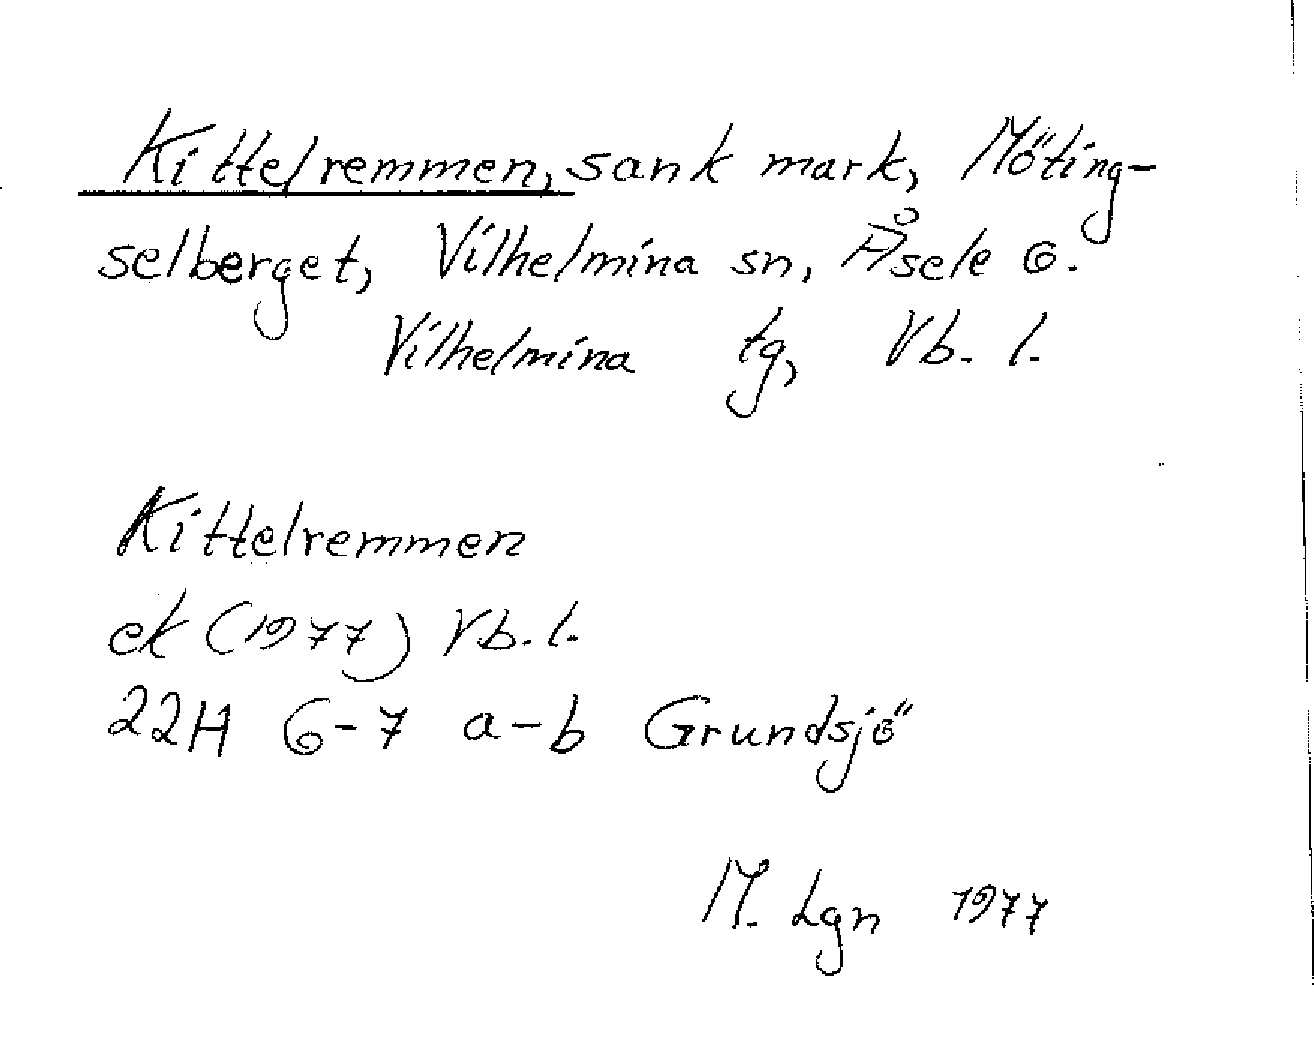 Kittelremmen, sank mark, Möting-
selberget, Vilhelmina sn, Åsele o.
Vilhelmina tg, Vb. l.
Kittelremmen
ek (1977) Vb. l.
22H 6-7 a-b Grundsjö
M. Lgn 1977